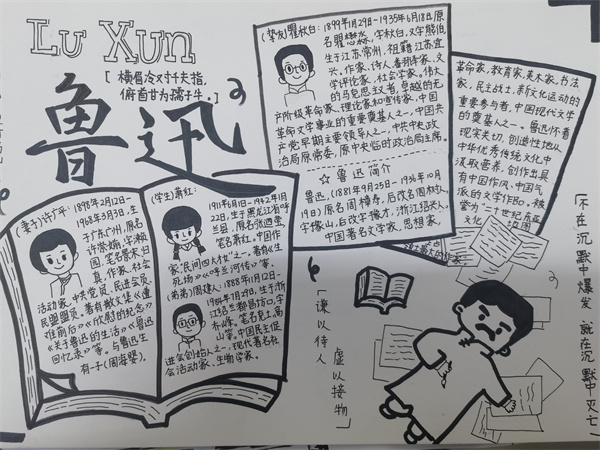 Lu Xun
鲁迅
[横眉冷对千夫指,
俯首甘为孺子牛.]
(挚友)瞿秋白:1899年1月29日-1935年6月18日,原
名瞿懋淼,字秋白,文学熊伯,
生于江苏常州,祖籍江苏宜
兴,作家、诗人、翻译家、文
学评论家、社会学家,伟大
的马克思主义者,卓越的无
产阶级革命家、理论家和宣传家,中国
革命文学事业的重要奠基人之一,中国共
产党早期主要领导人之一,中共中央政
治局原常委,原中央临时政治局主席.
☆ 鲁迅简介
鲁迅,(1881年9月25日-1936年10月
19日)原名周樟寿,后改名周树人,
字豫山,后改字豫才,浙江绍兴人,
中国著名文学家,思想家,
革命家,教育家,美术家,书法
家,民主战士,新文化运动的
重要参与者,中国现代文学
的奠基人之一.鲁迅怀着
现实关切,创造性地从
中华优秀传统文化中
汲取营养,创作出具
有中国作风、中国气
派的文学作品.被
誉为"二十世纪东亚
文化
(妻子)许广平:1898年2月12日-
1968年3月3日,生
于广东广州,原名
许崇媊,字漱
园,笔名景宋归
真,作家、社会
活动家,中共党员,民进会员,
民盟盟员.著有散文集《遭
难前后》《欣慰的纪念》
《关于鲁迅的生活》《鲁迅
回忆录》等.与鲁迅生
有一子(周海婴).
(学生)萧红:
1911年6月1日-1942年1月
22日,生于黑龙江省呼
兰县,原名张迺莹,
笔名萧红.中国作
家,"民国四大才女"之一,著有《生
死场》《呼兰河传》等.
(弟弟)周建人:1888年11月12日-
1984年7月29日,生于浙
江绍兴都昌坊口,字
乔峰,笔名克士、高
山等.中国民主促
进会创始人之一,现代著名社
会活动家、生物学家.
「谦以待人
虚以接物」
不在沉默中爆发
就在沉默中灭亡